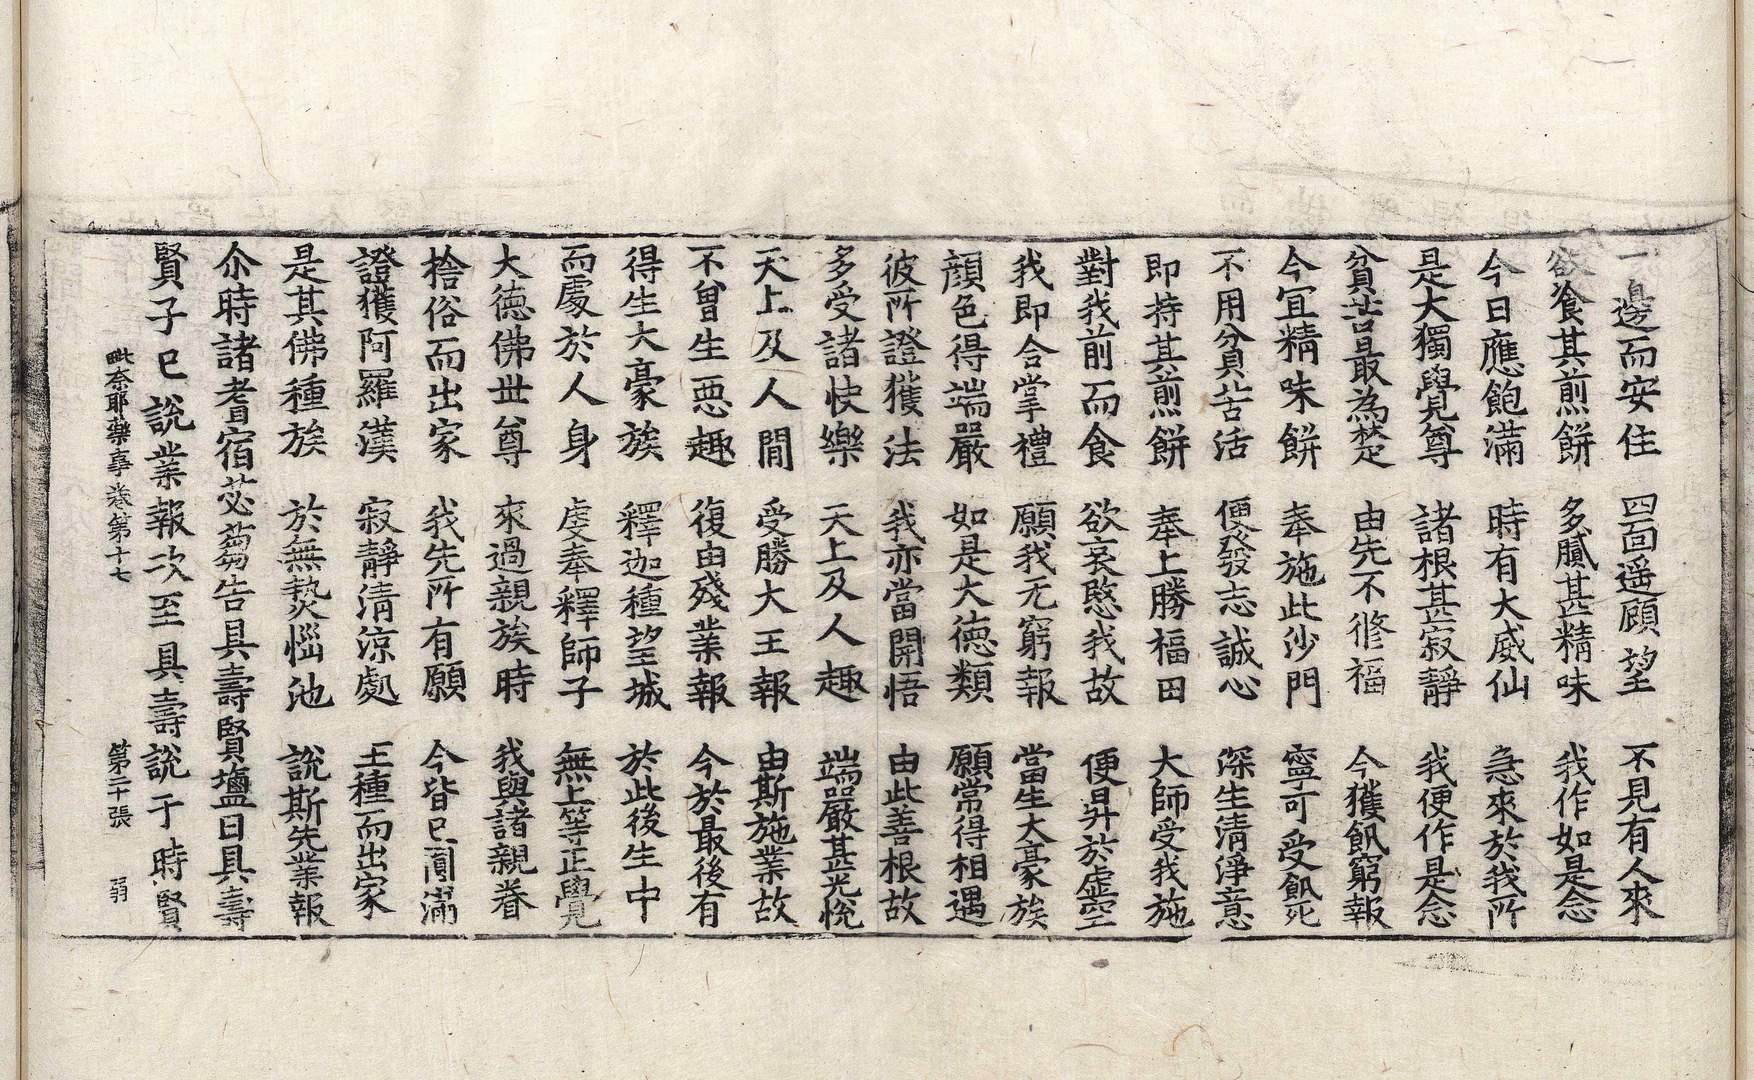 一邊而安住 四面遥顧望 不見有人來
欲飡其煎餅 多膩甚精味 我作如是念
今日應飽滿 時有大威仙 急來於我所
是大獨覺尊 諸根甚寂靜 我便作是念
貧苦最為楚 由先不修福 今獲飢窮報
今宜精味餅 奉施此沙門 寧可受飢死
不用貧苦活 便發志誠心 深生清淨意
即持其煎餅 奉上勝福田 大師受我施
對我前而食 欲哀愍我故 便昇於虛空
我即合掌禮 願我无窮報 當生大豪族
顔色得端嚴 如是大德類 願常得相遇
彼所證獲法 我亦當開悟 由此善根故
多受諸快樂 天上及人趣 端嚴甚光悅
天上及人間 受勝大王報 由斯施業故
不曾生惡趣 復由殘業報 今於最後有
得生大豪族 釋迦種望城 於此後生中
而處於人身 虔奉釋師子 無上等正覺
大德佛世尊 來過親族時 我與諸親眷
捨俗而出家 我先所有願 今皆已圓滿
證獲阿羅漢 寂靜清涼處 王種而出家
是其佛種族 於無熱惱池 說斯先業報
尒時諸耆宿苾芻告具壽賢鹽曰具壽
賢子已說業報次至具壽說于時賢
毗奈耶藥事卷第十七 第二十張 弱